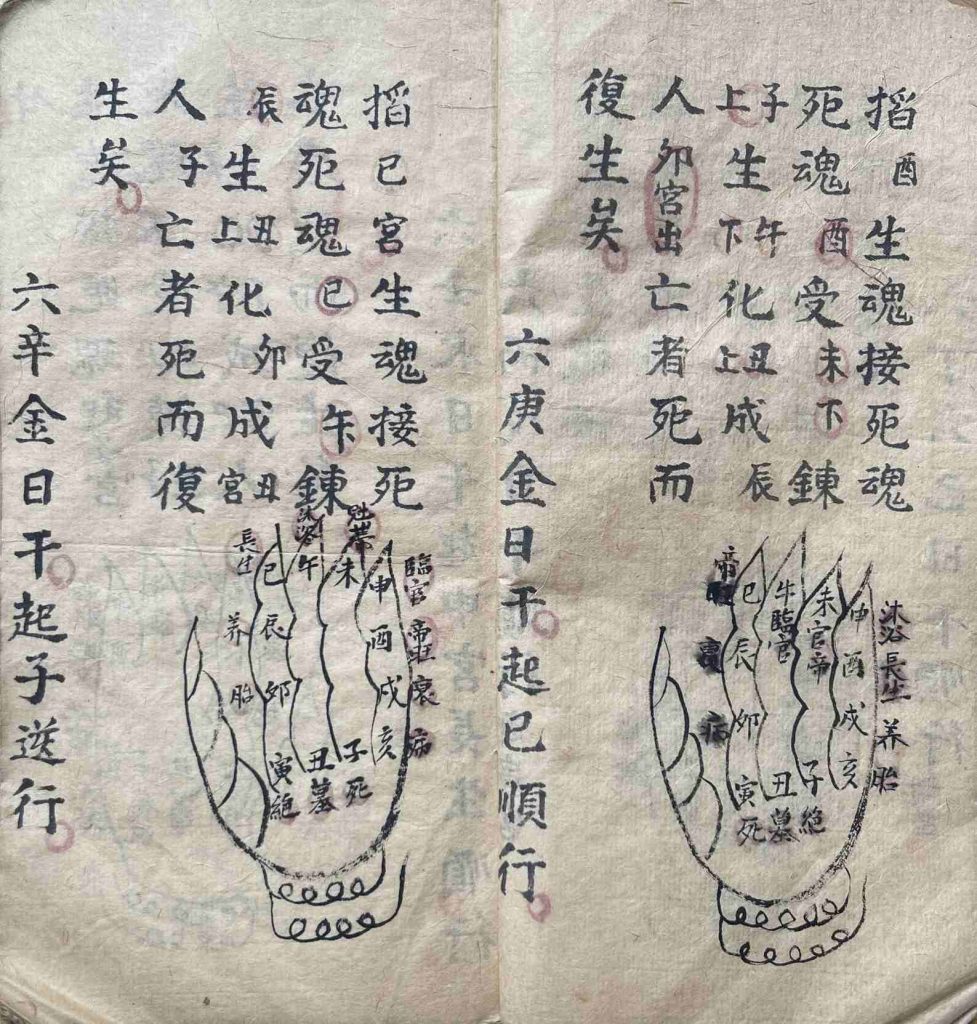 掐酉生魂接死魂
死魂酉受未下鍊
子上生午下化丑上成辰
人卯宮出亡者死而
復生矣
六庚金日干起巳順行
沐浴長生养胎
申酉戌亥
未官帝
子絶
午臨官
丑墓
巳辰卯寅死
帝旺衰病
掐巳宮生魂接死
魂死魂巳受午鍊
辰生丑上化卯成丑宮
人子亡者死而復
生矣
六辛金日干起子送行
臨官帝旺衰病
申酉戌亥
未
子死
沐浴午
丑墓
巳辰卯寅絕
長生养胎